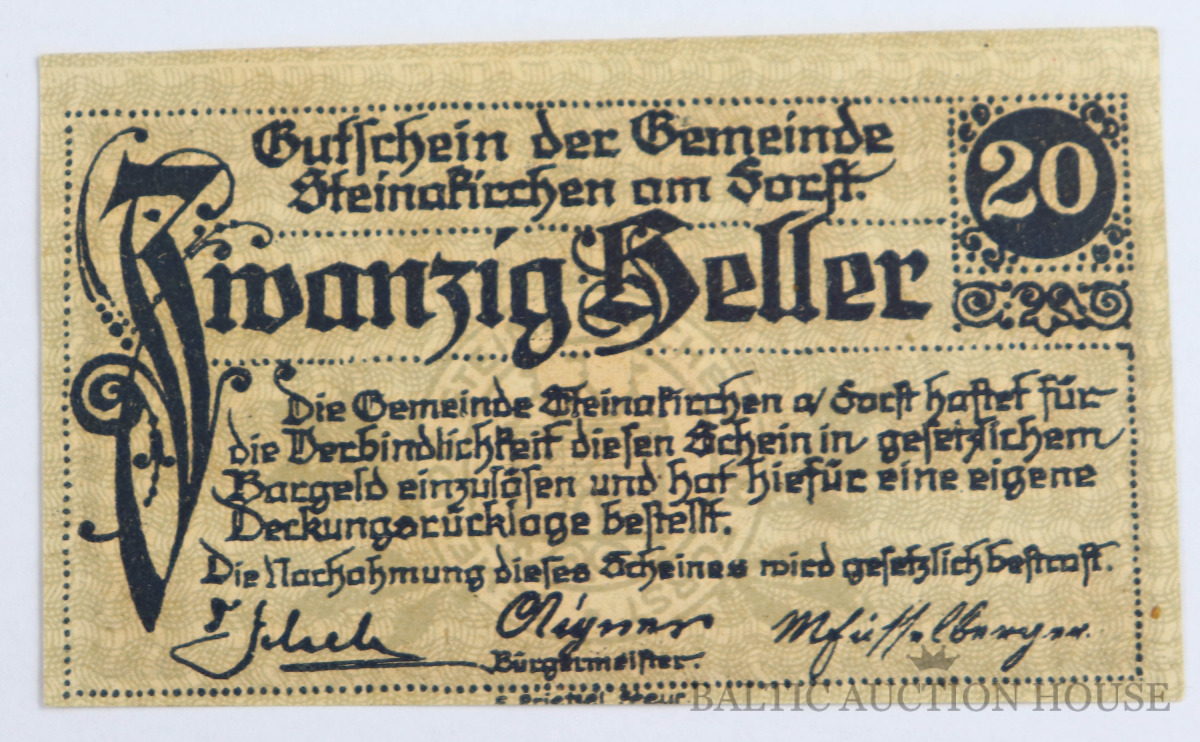 Gutschein der Gemeinde
Steinakirchen am Forst.
20
Zwanzig Heller
Die Gemeinde Steinakirchen a/ Forst haftet für
die Verbindlichkeit diesen Schein in gesetzlichem
Bargeld einzulösen und hat hiefür eine eigene
Deckungsrücklage bestellt.
Die Nachahmung dieses Scheines wird gesetzlich bestraft.
Aigner
Bürgermeister.
BALTIC AUCTION HOUSE